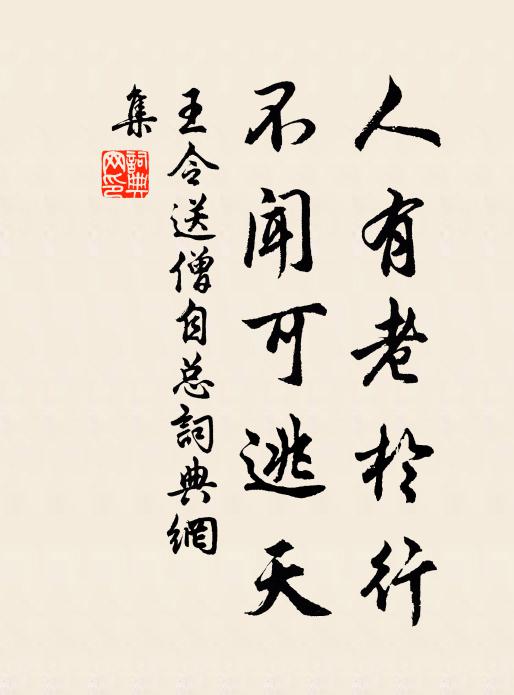 人有老於行
不闻可逃天
王令送僧自总詞典網
集
詞典网印